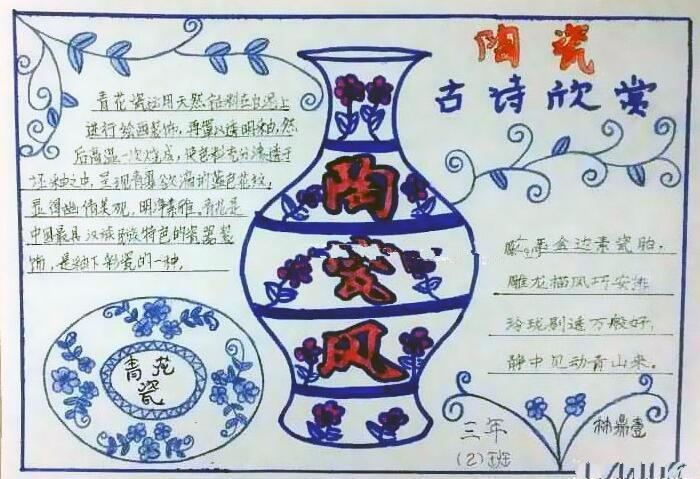 陶瓷
古诗欣赏
青花瓷运用天然钴料在白泥上
进行绘画装饰，再罩以透明釉，然
后高温一次烧成，使色料充分渗透于
坯釉之中，呈现青翠欲滴的蓝色花纹，
显得幽倩美观，明净素雅。青花是
中国最具汉族民族特色的瓷器装
饰，是釉下彩瓷的一种。
陶
瓷
风
青花
瓷
金边素瓷胎，
雕龙描凤巧安排
玲珑剔透万般好，
静中见动青山来。
三年
(2)班
林鼎壹